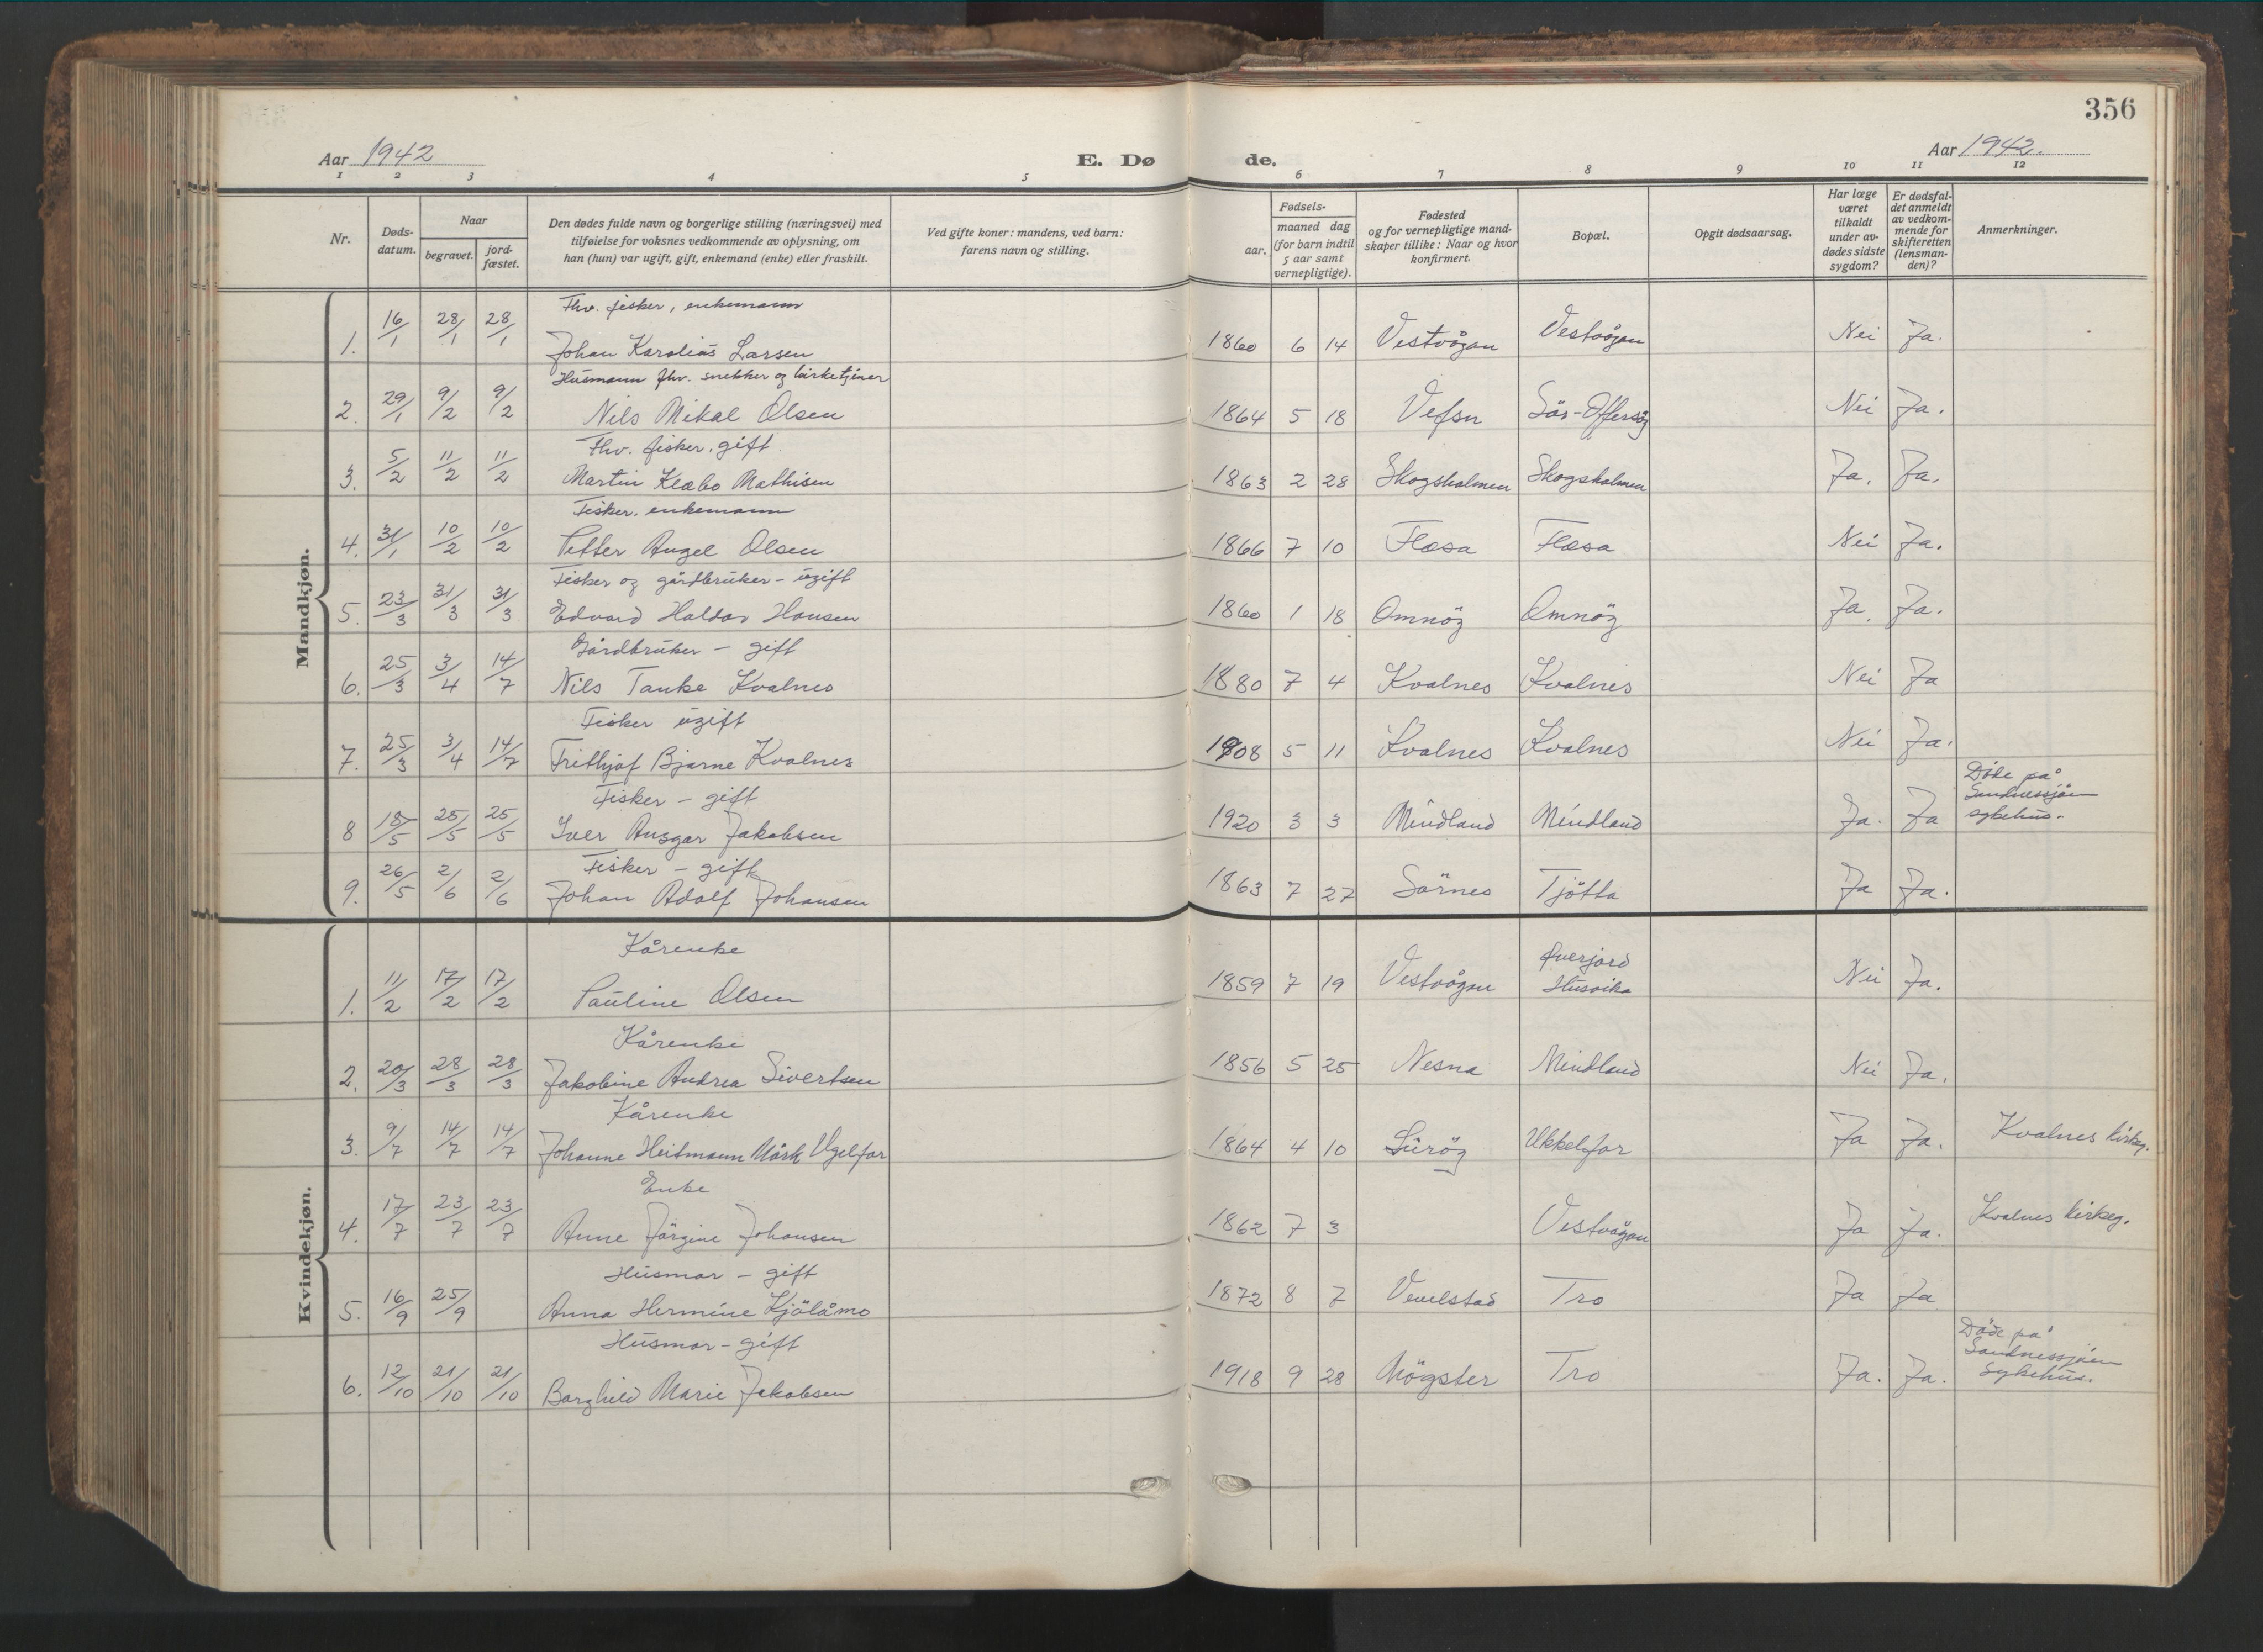 356
Aar 1942
E. Dø de.
Aar 1942.
1 2 3 4 5 6 7 8 9 10 11 12
Nr.
Døds-datum.
Naar
begravet.
jord-fæstet.
Den dødes fulde navn og borgerlige stilling (næringsvei) med
tilføielse for voksnes vedkommende av oplysning, om
han (hun) var ugift, gift, enkemand (enke) eller fraskilt.
Ved gifte koner: mandens, ved barn:
farens navn og stilling.
Fødsels-
aar.
maaned dag
(for barn indtil
5 aar samt
vernepligtige).
Fødested
og for vernepligtige mand-
skaper tillike: Naar og hvor
konfirmert.
Bopæl.
Opgit dødsaarsag.
Har læge
været
tilkaldt
under av-
dødes sidste
sygdom?
Er dødsfal-
det anmeldt
av vedkom-
mende for
skifteretten
(lensman-
den)?
Anmerkninger.
Mandkjøn.
Fhv. fisker, enkemann
1. 16/1 28/1 28/1 Johan Karolius Larsen 1860 6 14 Vestvågan Vestvågan Nei Ja.
Husmann fhv. snekker og kirketjener
2. 29/1 9/2 9/2 Nils Mikal Olsen 1864 5 18 Vefsn Sör-Offersöy Nei Ja.
Fhv. fisker, gift
3. 5/2 11/2 11/2 Martin Klæbo Mathisen 1863 2 28 Skogsholmen Skogsholmen Ja. Ja.
Fisker, enkemann
4. 31/1 10/2 10/2 Petter Angel Olsen 1866 7 10 Flæsa Flæsa Nei Ja.
Fisker og gårdbruker - ugift
5. 23/3 31/3 31/3 Edvard Haldor Hansen 1860 1 18 Omnöy Omnöy Ja. Ja.
Gårdbruker - gift
6. 25/3 3/4 14/7 Nils Tanke Kvalnes 1880 7 4 Kvalnes Kvalnes Nei Ja
Fisker ugift
7. 25/3 3/4 14/7 Frithjof Bjarne Kvalnes 1908 5 11 Kvalnes Kvalnes Nei Ja.
Fisker - gift
8 18/5 25/5 25/5 Iver Ansgar Jakobsen 1920 3 3 Mindland Mindland Ja. Ja Döde på
Sandnessjöen
sykehus.
Fisker - gift
9. 26/5 2/6 2/6 Johan Adolf Johansen 1863 7 27 Sörnes Tjötta Ja Ja.
Kvindekjøn.
Kårenke
1. 11/2 17/2 17/2 Pauline Olsen 1859 7 19 Vestvågan Øverjord
Husvika Nei Ja.
Kårenke
2. 20/3 28/3 28/3 Jakobine Andrea Sivertsen 1856 5 25 Nesna Mindland Nei Ja.
Kårenke
3. 9/7 14/7 14/7 Johanne Heitmann Mörk Ugelfar 1864 4 10 Luröy Ukkelfar Ja Ja. Kvalnes kirkeg.
Enke
4. 17/7 23/7 23/7 Anne Jörgine Johansen 1862 7 3 Vestvågan Ja Ja. Kvalnes kirkeg.
Husmor - gift
5. 16/9 25/9 Anna Hermine Kjölåmo 1872 8 7 Vevelstad Tro Ja Ja
Husmor - gift
6. 12/10 21/10 21/10 Borghild Marie Jakobsen 1918 9 28 Mögster Tro Ja. Ja. Döde på
Sandnessjöen
Sykehus.